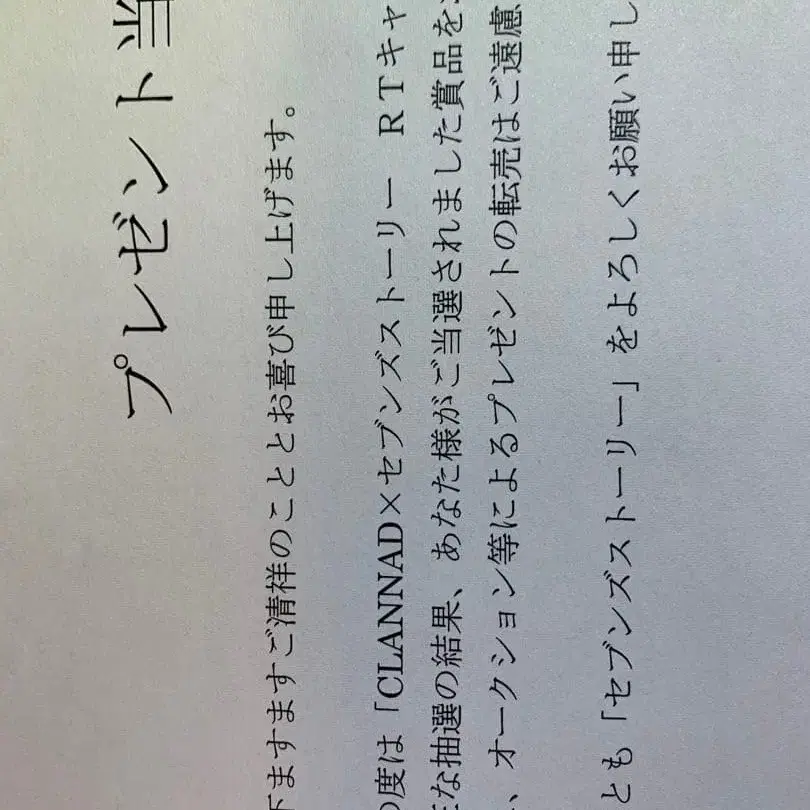 プレゼント当
ますますご清祥のこととお喜び申し上げます。
の度は「CLANNAD×セブンズストーリー　RTキャ
な抽選の結果、あなた様がご当選されました賞品を
、オークション等によるプレゼントの転売はご遠慮
とも「セブンズストーリー」をよろしくお願い申し